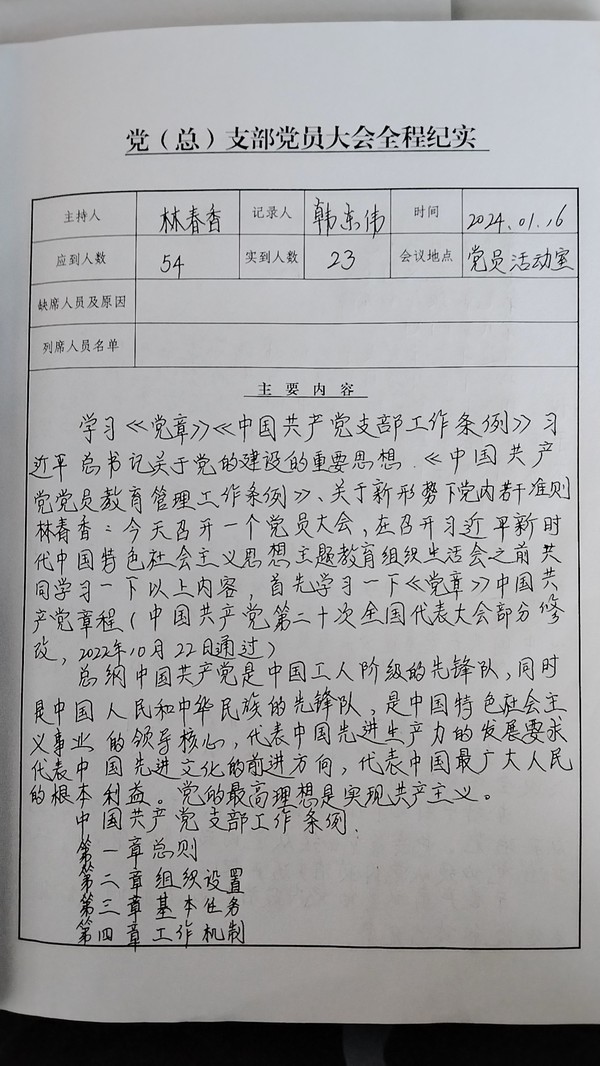 党（总）支部党员大会全程纪实
主持人 林春香 记录人 韩东伟 时间 2024.01.16
应到人数 54 实到人数 23 会议地点 党员活动室
缺席人员及原因
列席人员名单
主要内容
学习《党章》《中国共产党支部工作条例》习
近平总书记关于党的建设的重要思想.《中国共产
党党员教育管理工作条例》、关于新形势下党内若干准则
林春香：今天召开一个党员大会，在召开习近平新时
代中国特色社会主义思想主题教育组织生活会之前共
同学习一下以上内容，首先学习一下《党章》中国共
产党章程（中国共产党第二十次全国代表大会部分修
改，2022年10月22日通过）
总纲中国共产党是中国工人阶级的先锋队，同时
是中国人民和中华民族的先锋队，是中国特色社会主
义事业的领导核心，代表中国先进生产力的发展要求
代表中国先进文化的前进方向，代表中国最广大人民
的根本利益。党的最高理想是实现共产主义。
中国共产党支部工作条例.
第一章总则
第二章组织设置
第三章基本任务
第四章工作机制